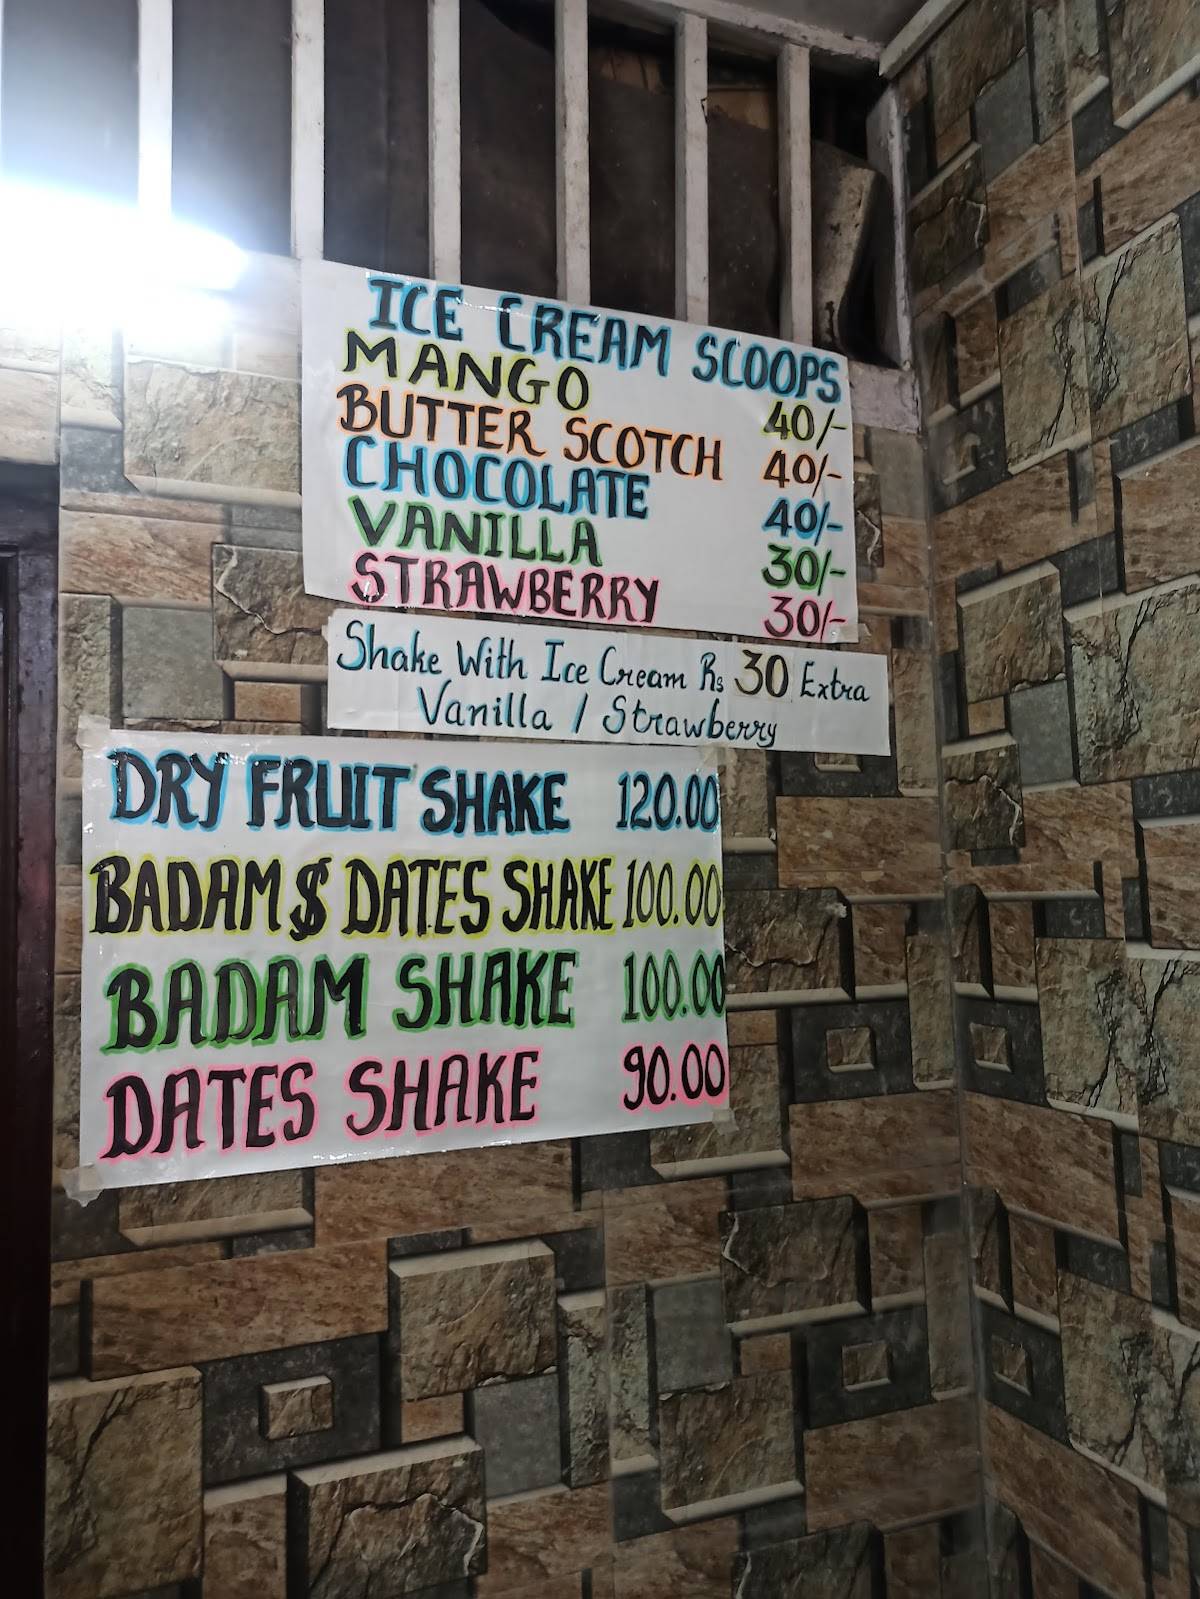 ICE CREAM SCOOPS
MANGO 40/-
BUTTER SCOTCH 40/-
CHOCOLATE 40/-
VANILLA 30/-
STRAWBERRY 30/-
Shake With Ice Cream Rs 30 Extra
Vanilla / Strawberry
DRY FRUIT SHAKE 120.00
BADAM $ DATES SHAKE 100.00
BADAM SHAKE 100.00
DATES SHAKE 90.00